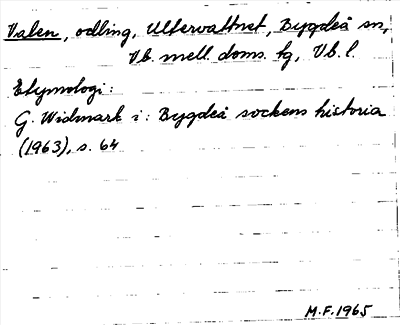 Valen, odling, Ultervattnet, Bygdeå sn,
Vb. mell. doms. tg, Vb. l.
Etymologi:
G. Widmark i: Bygdeå sockens historia
(1963), s. 64
M.F. 1965